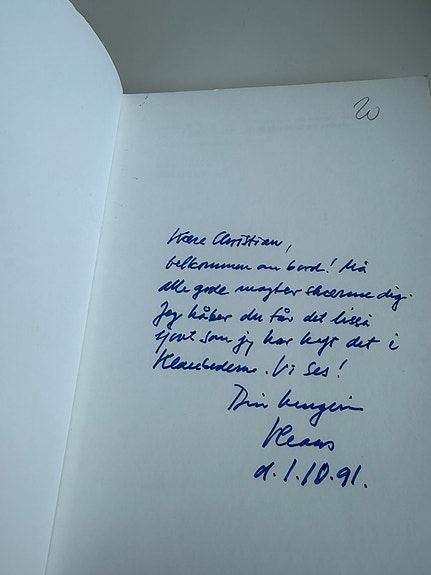 20
Kære Christian,
velkommen om bord! Må
alle gode magter skærme dig.
Jeg håber du får det ligså
sjovt som jeg har haft det i
Vi ses!
Din hengivne
Klaus
d. 1.10.91.